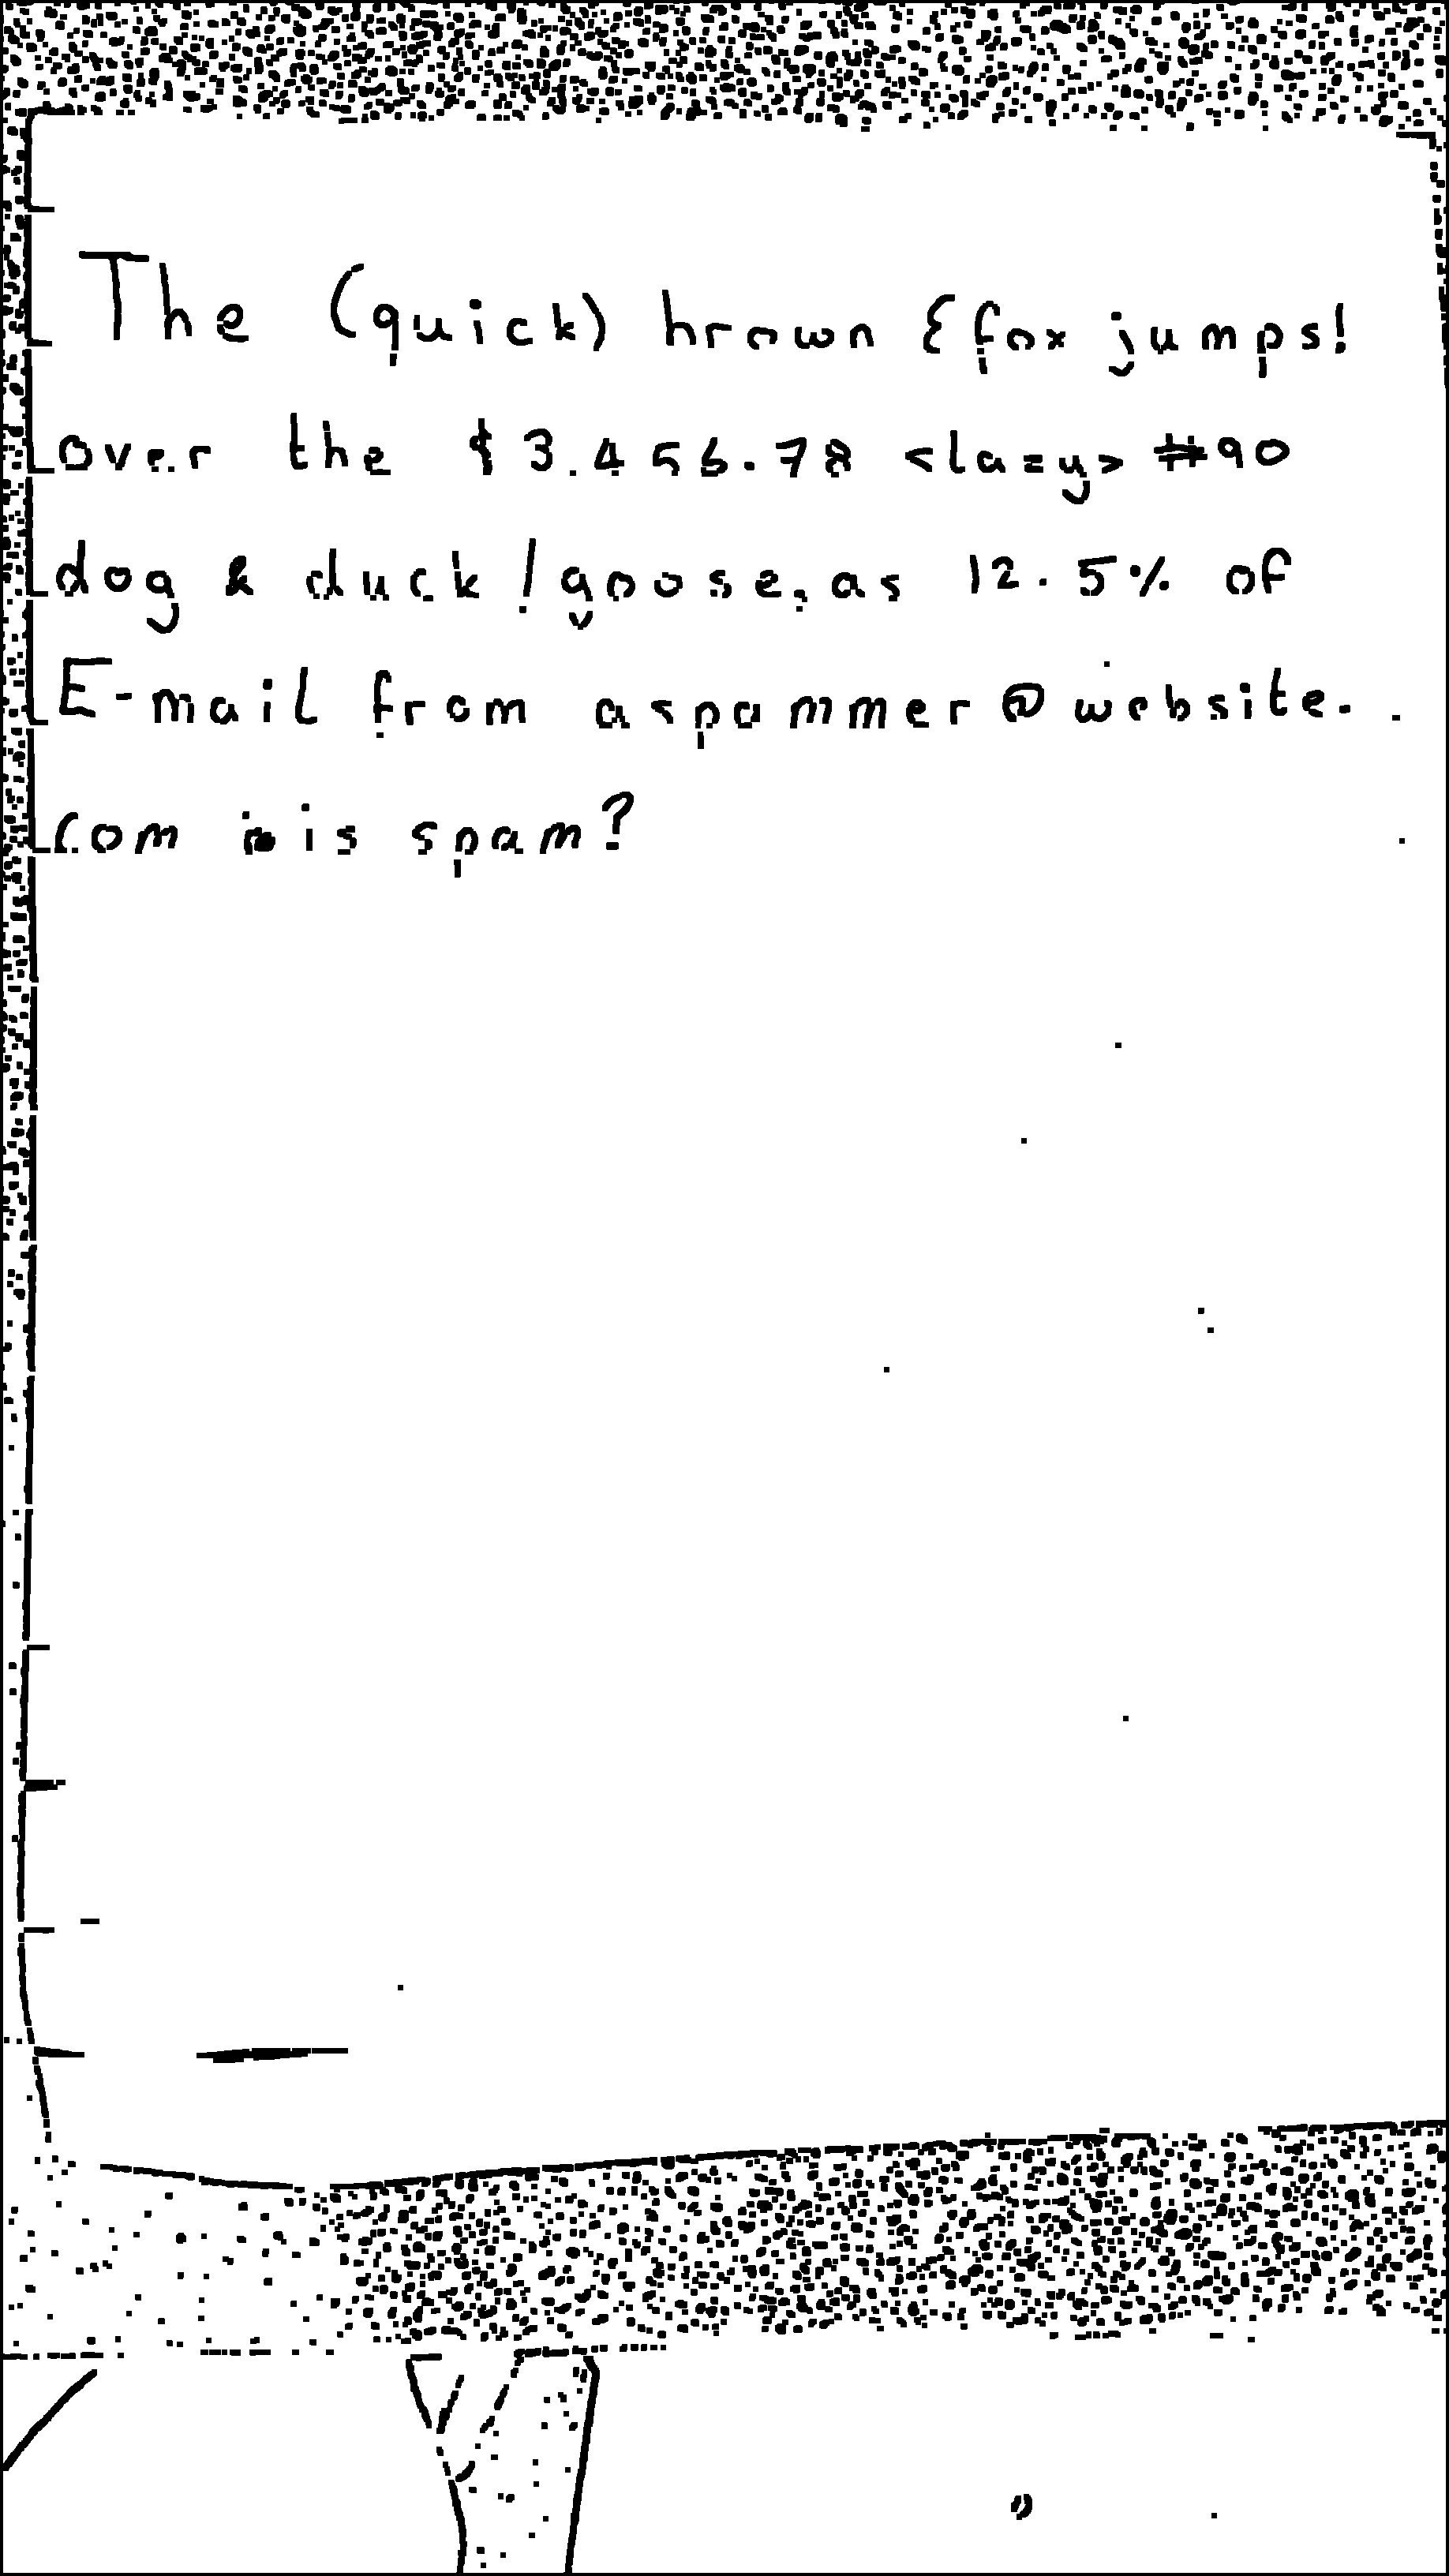 The (quick) brown {fox jumps!
over the $3.456.78 <lazy> #90
dog & duck/goose, as 12.5% of
E-mail from aspammer@website.
com is spam?